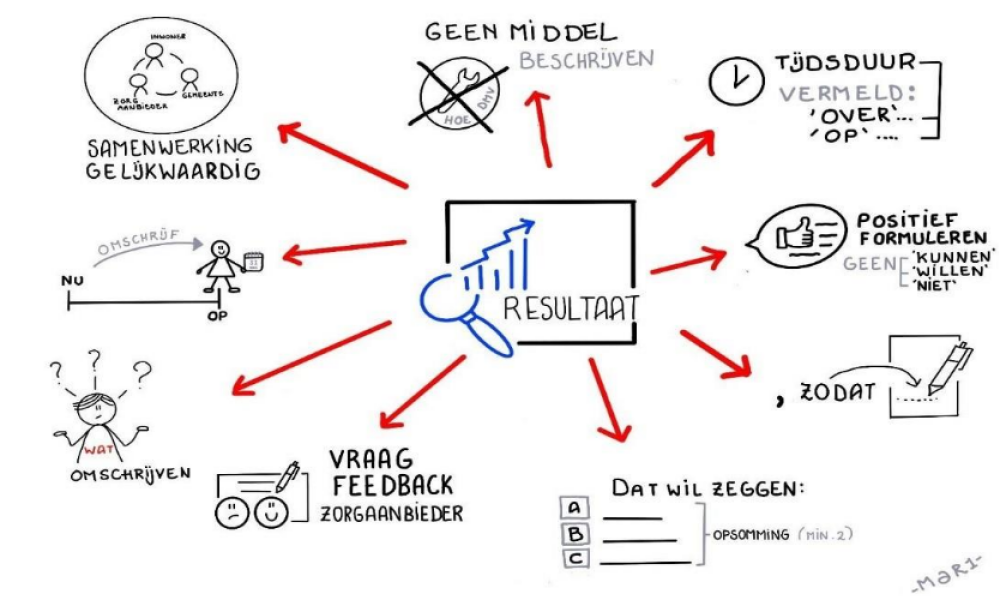 INWONER
ZORG
AANBIEDER
GEMEENTE
SAMENWERKING
GELIJKWAARDIG
GEEN MIDDEL
BESCHRIJVEN
HOE
DMV
TIJDSDUUR
VERMELD:
'OVER'...
'OP' ....
OMSCHRIJF
NU
OP
31
RESULTAAT
POSITIEF
FORMULEREN
GEEN
'KUNNEN'
'WILLEN'
'NIET'
? ? ?
WAT
OMSCHRIJVEN
, ZODAT
VRAAG
FEEDBACK
ZORGAANBIEDER
DAT WIL ZEGGEN:
A
B
C
OPSOMMING (MIN. 2)
-MARI-